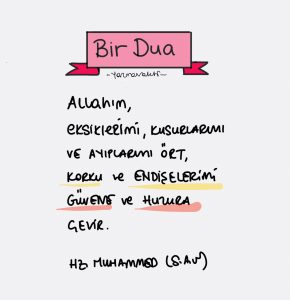 Bir Dua
Allahım,
eksiklerimi, kusurlarımı
ve ayıplarımı ört,
korku ve endişelerimi
güvene ve huzura
çevir.
Hz Muhammed (s.a.v)